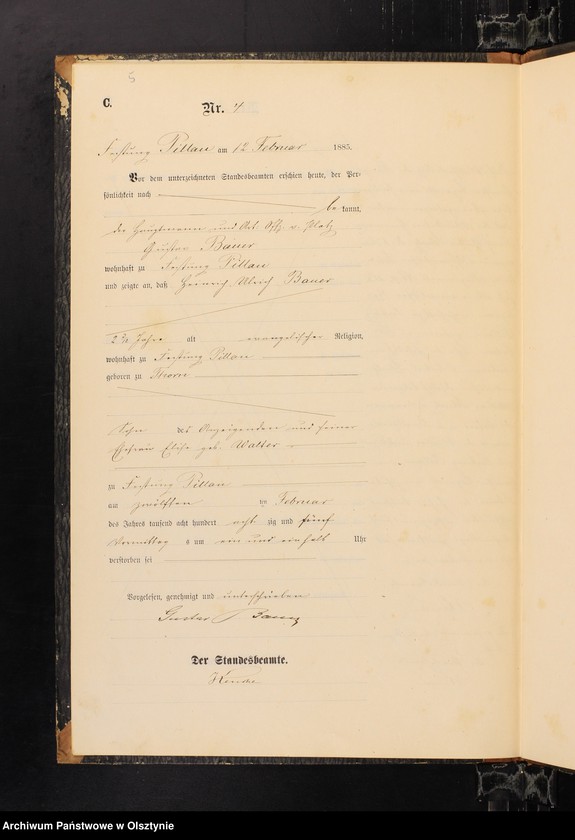 5
C.
Nr. 4
Festung Pillau am 12 Februar 1885.
Vor dem unterzeichneten Standesbeamten erschien heute, der Per-
sönlichkeit nach
be kannt,
der Hauptmann und Art. Offz. v. Platz
Gustav Bauer
wohnhaft zu Festung Pillau
und zeigte an, daß Heinrich Ulrich Bauer
2 Jahre alt evangelischer Religion,
wohnhaft zu Festung Pillau
geboren zu Thorn
Sohn des Anzeigenden und seiner
Ehefrau Elise geb. Walter
zu Festung Pillau
am zwölften ten Februar
des Jahres tausend acht hundert acht zig und fünf
Vormittag s um ein und einhalb Uhr
verstorben sei
Vorgelesen, genehmigt und unterschrieben
Gustav Bauer
Der Standesbeamte.
Archiwum Państwowe w Olsztynie